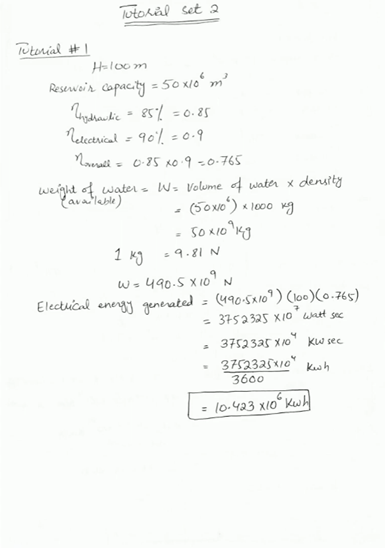 Tutorial set 2
Tutorial #1
H=100m
Reservoir capacity = 50 x10⁶ m³
ηhydraulic = 85% = 0.85
ηelectrical = 90% = 0.9
ηoverall = 0.85 x0.9 = 0.765
weight of water = W = Volume of water x density
(available)
= (50x10⁶) x 1000 kg
= 50 x10⁹ kg
1 kg = 9.81 N
W = 490.5 x10⁹ N
Electrical energy generated = (490.5x10⁹) (100)(0.765)
= 3752325 x10⁷ watt sec
= 3752325 x10⁴ KW sec
= 3752325x10⁴ / 3600 Kwh
= 10.423 x10⁶ Kwh